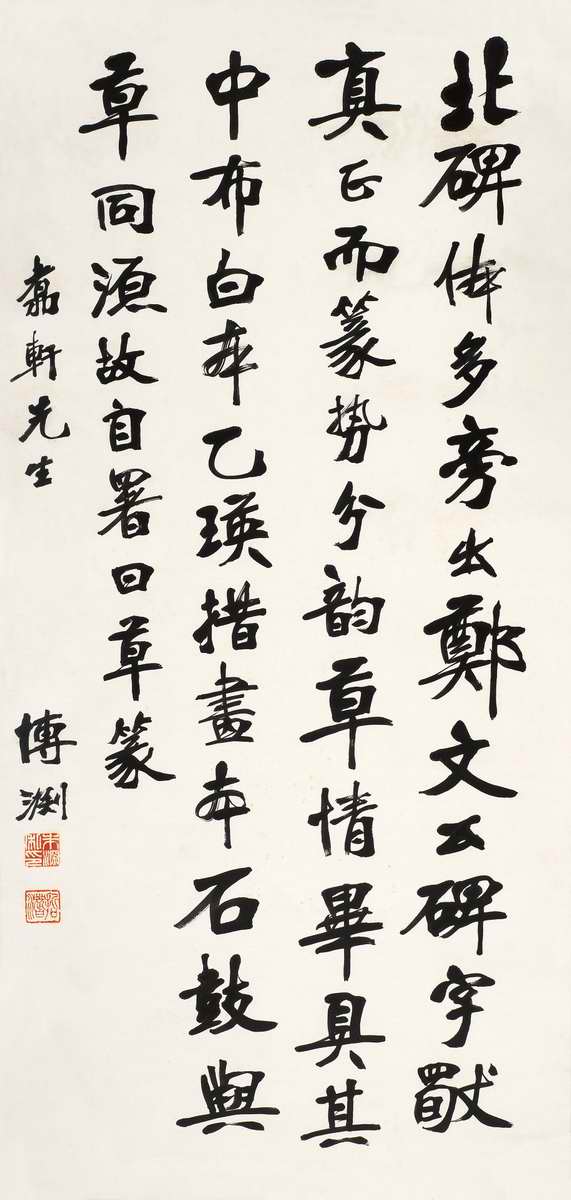 北碑体多旁出鄭文公碑字獨
真正而篆勢分韵草情畢具其
中布白本乙瑛措畫本石鼓與
草同源故自署曰草篆
嘉軒先生
博淵